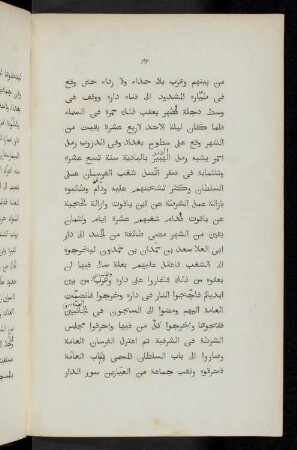 من بينهم وهرب بلا حذاء ولا رداء حتى وقع
في المشدود الى فناء داره ووقف في
وسط دجلة فظهر بعقب ذلك حمرة في السماء
فلما كان ليلة الاحد لاربع عشرة بقيت من
الشهر وقع على سطوح بغداد وفي الدروب رمل
احمر يشبه رمل الهبير بالبادية سنة تسع عشرة
وثلثماية في صفر اتصل شغب الفرسان على
السلطان وكثر تشحنهم عليه ودام وطالبوه
بازالة عمل الشرطة عن ابن ياقوت وازالة الحجبة
عن ياقوت فدام شغبهم عشرة ايام ولثمان
بقين من الشهر مضى طائفة من الجند الى دار
ابي العلا سعد بن حمدان بن حمدون ليخرجوه
الى الشغب فاعتل عليهم بعلة سال فيها ان
يعفوه من ذلك فاغاروا على داره وهرب من بين
ايديهم فاججوا النار في داره وخرجوا فانضمت
العامة اليهم ومضوا الى السجون في الجانبين
ففتحوها واخرجوا كل من فيها واحرقوا مجلس
الشرطة في الشرقية ثم اعتزل الفرسان العامة
وصاروا الى باب السلطان المسمى بباب العامة
فاحرقوه ونقب جماعة من العيارين سور الدار